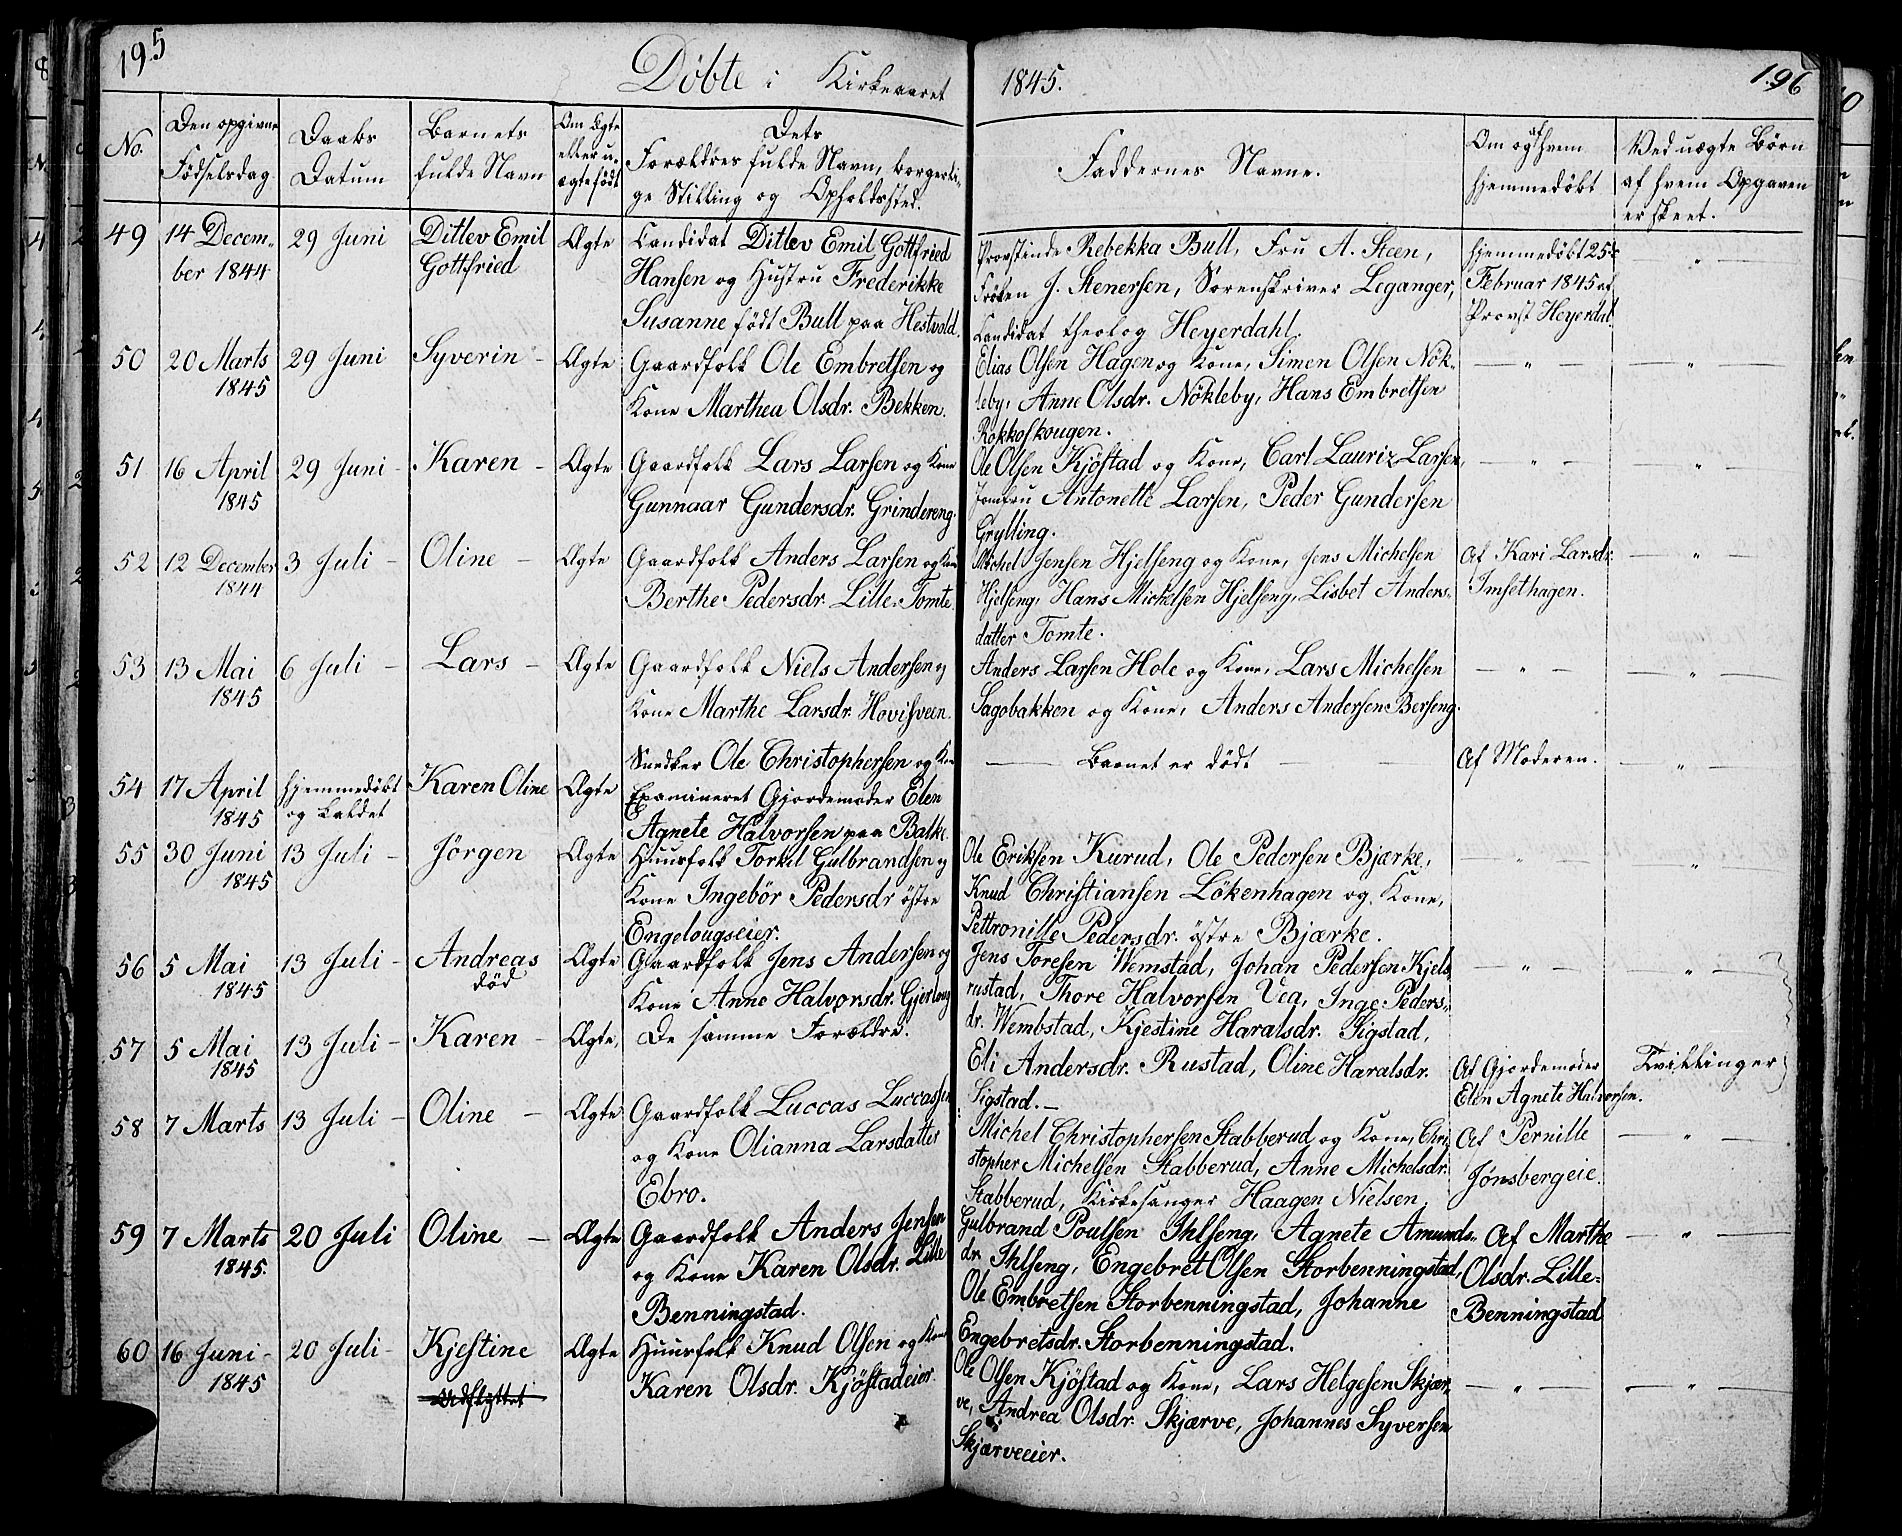 195
Döbte i Kirkeaaret
1845.
196
No.
Den opgivne Födselsdag
Daabs Datum
Barnets fulde Navn
Om Ægte eller u-ægte födt
Dets Forældres fulde Navn, borgerlige Stilling og Opholdssted.
Faddernes Navne.
Om og af hvem hjemmedöbt
Ved uægte Börn af hvem Opgaven er skeet.
49 14 Decem-ber 1844 29 Juni Ditlev Emil Gottfried Ægte
Candidat Ditlev Emil Gottfried
Hansen og Hustru Frederikke
Susanne födt Bull paa Hestvold.
Provstinde Rebekka Bull, Fru A. Steen,
Fröken J. Stenersen, Sorenskriver Leganger,
Candidat theolog Heyerdahl.
Hjemmedöbt 25de
Februar 1845 af
Provst Heyerdal.
50 20 Marts 1845 29 Juni Syverin - Ægte
Gaardfolk Ole Embretsen og
Kone Marthea Olsdr. Bekken.
Elias Olsen Hagen og Kone, Simen Olsen Nök-
leby, Anne Olsdr. Nökleby, Hans Embretsen
Rokkoskougen.
51 16 April 1845 29 Juni - Karen - Ægte
Gaardfolk Lars Larsen og Kone
Gunnaar Gundersdr. Grindereng.
Ole Olsen Kjöstad og Kone, Carl Lauriz Larsen,
Jomfru Antonette Larsen, Peder Gundersen
Grylling.
52 12 December 1844 3 Juli - Oline - Ægte
Gaardfolk Anders Larsen og Kone
Berthe Pedersdr. Lille-Tomte.
Michel Jensen Hjelseng og Kone, Jens Michelsen
Hjelseng, Hans Michelsen Hjelseng, Lisbet Anders-
datter Tomte.
Af Kari Larsdr.
Imsethagen.
53 13 Mai 1845 6 Juli - Lars - Ægte
Gaardfolk Niels Andersen og
Kone Marthe Larsdr. Hovisveen.
Anders Larsen Hole og Kone, Lars Michelsen
Sagobakken og Kone, Anders Andersen Berseng.
54 17 April 1845 Hjemmedöbt og kaldet Karen Oline Ægte
Snedker Ole Christophersen og Kone
Examineret Gjordemoder Elen
Agnete Halvorsen paa Balke
Barnet er dödt
Af Moderen.
55 30 Juni 1845 13 Juli - Jörgen Ægte
Huusfolk Torkel Gulbrandsen og
Kone Ingebör Pedersdr östre
Engelougseier.
Ole Eriksen Kurud, Ole Pedersen Bjærke,
Knud Christiansen Lökenhagen og Kone,
Pettronille Pedersdr. östre Bjærke.
56 5 Mai 1845 13 Juli - Andreas död Ægte
Gaardfolk Jens Andersen og
Kone Anne Halvorsdr. Gjerloug
Jens Toresen Wemstad, Johan Pedersen Kjels
rustad, Thore Halvorsen Vea, Inge Peders-
dr. Wembstad, Kjestine Haralsdr. Sigstad,
57 5 Mai 1845 13 Juli - Karen - Ægte,
De samme Forældre.
Eli Andersdr. Rustad, Oline Haralsdr.
Sigstad. -
Af Gjordemoder
Elen Agnete Halvorsen.
Tvillinger
58 7 Marts 13 Juli - Oline - Ægte
Gaardfolk Luccas Luccassen
og Kone Olianna Larsdatter
Ebro.
Michel Christophersen Stabberud og Kone, Chri
stopher Michelsen Stabberud, Anne Michelsdr.
Stabberud, Kirkesanger Haagen Nielsen,
Af Pernille
Jönsbergeie.
59 7 Marts 1845. 20 Juli Oline - Ægte
Gaardfolk Anders Jensen
og Kone Karen Olsdr. Lille
Benningstad.
Gulbrand Poulsen Ihlseng, Agnete Amunds-
dr. Ihlseng, Engebret Olsen Storbenningstad,
Ole Embretsen Storbenningstad, Johanne
Engebretsdr. Storbenningstad.
Af Marthe
Olsdr. Lille-
Benningstad
60 16 Juni - 1845 20 Juli - Kjestine Udflyttet Ægte
Huusfolk Knud Olsen og Kone
Karen Olsdr. Kjöstadeier.
Ole Olsen Kjöstad og Kone, Lars Helgesen Skjær-
ve, Andrea Olsdr. Skjærve, Johannes Syversen
Skjærveeier.